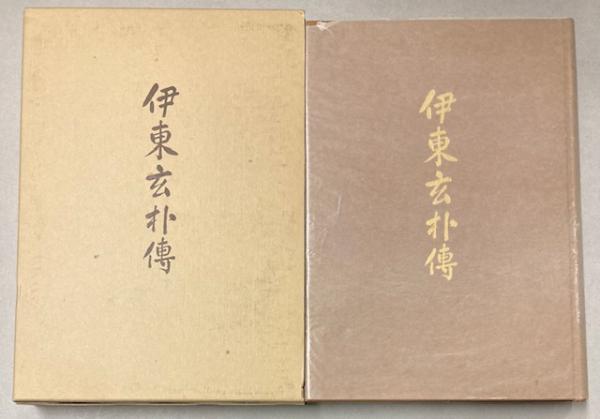 伊東玄朴傳
伊東玄朴傳